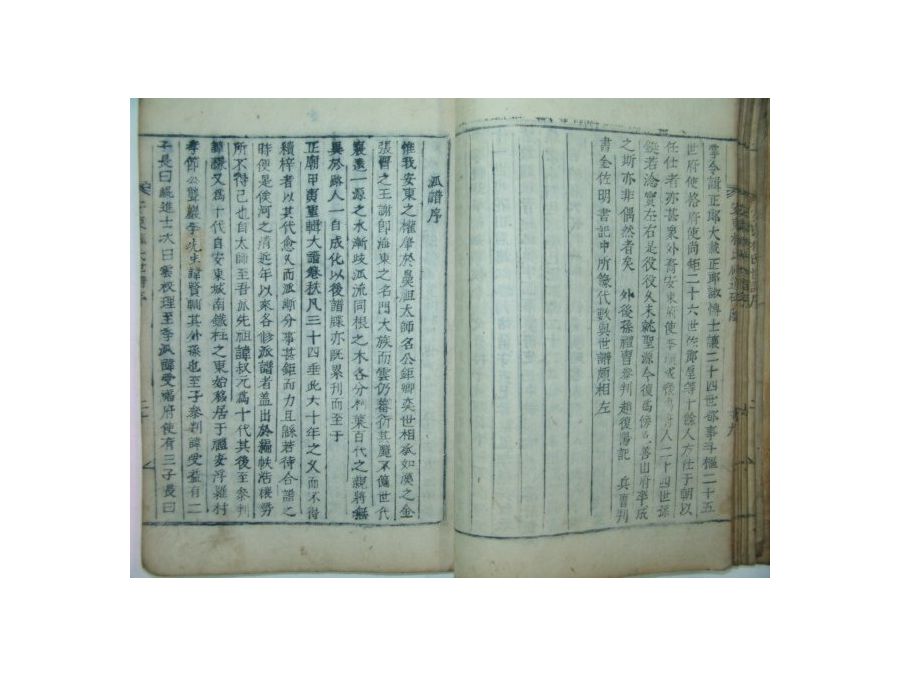 掌令誼正郎大載正郎淑博士護二十四世都事斗樞二十五
世府使恪府使尚矩二十六世佐郎屋等十餘人方仕于朝以
任仕者亦甚衆外裔安東府使李 府人二十四世孫
鋌若淦實左右是役役久未就聖源今復爲傍 善山府平成
之斯亦非偶然者矣 外後孫禮曹參判趙復陽記 兵曹判
書金佐明書記中所錄代數與世譜頗相左
派譜序
惟我安東之權肇於鼻祖太師名公鉅卿奕世相承如漢之金
張晋之王謝卽海東之名門大族而雲仍蕃衍其麗不億世代
寢遠一源之水漸歧派流同根之木各分柯葉百代之親將無
異於路人一自成化以後譜牒亦既累刊而至于
正廟甲寅重輯大譜卷秩凡三十四垂此六十年之久而不得
續梓者以其代愈久而派漸分事甚鉅而力且縣若待合譜之
時便是俟河之清近年以來各修派譜者盖出於編帙浩穰勞
所不得已也自太師至吾派先祖諱叔元爲十代其後至參判
諱 又爲十代自安東城南鐵柱之東始移居于醴安浮羅村
孝節公聾巖李先生諱賢輔其外孫也至子參判諱受益有二
子長曰 進士次曰雲 校理至季派諱受福府使有三子長曰